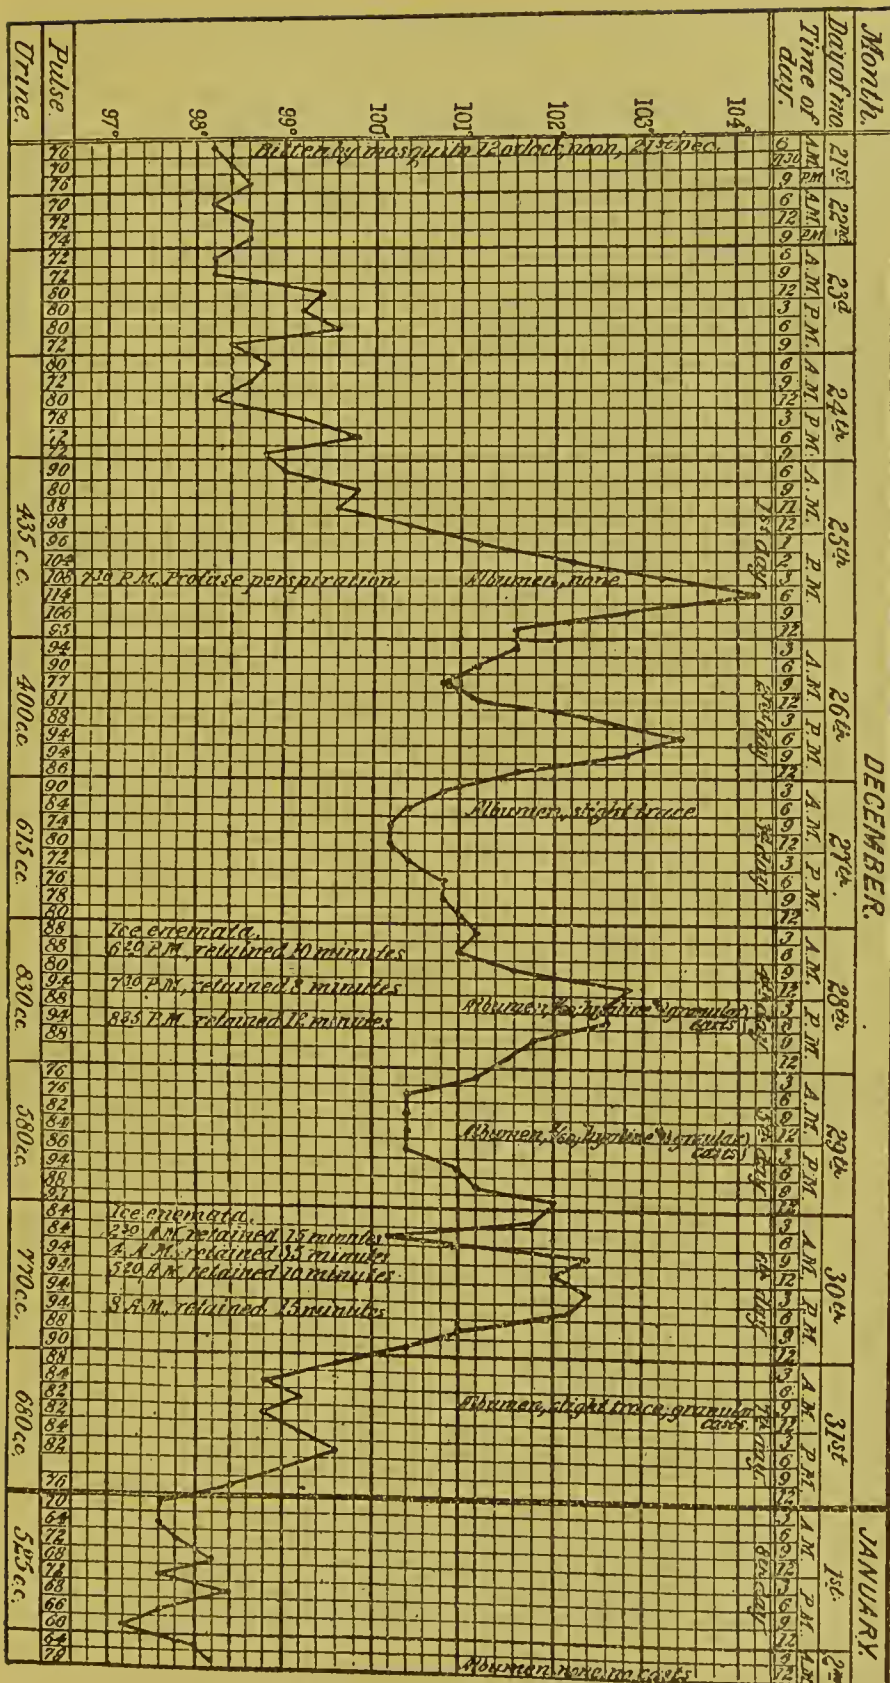 Month. DECEMBER. JANUARY.
Day of mo 21st 22nd 23d 24th 25th 26th 27th. 28th 29th 30th 31st 1st. 2nd
Time of day. A.M. P.M. A.M. P.M. A.M. P.M. A.M. P.M. A.M. P.M. A.M. P.M. A.M. P.M. A.M. P.M. A.M. P.M. A.M. P.M. A.M. P.M. A.M. P.M. A.M.
6 9 6 12 9 9 12 3 6 9 6 9 12 3 6 9 6 9 11 12 1 2 3 6 9 12 3 6 9 12 3 6 9 12 3 6 9 12 3 6 9 12 3 6 9 12 3 6 9 12 3 6 9 12 3 6 9 12 3 6 9 12 3 6 9 12 3 6 9 12 3 6 9 12 3 6 9 12 12
1st day 2nd day 3d day 4th day 5th day 6th day 7th day 8th day
104°
103°
102°
101°
100°
99°
98°
97°
Bitten by mosquito 12 o'clock, noon, 21st Dec.
7:30 P.M. Profuse perspiration
Albumen, none
Albumen, slight trace
Ice enemata.
6:20 P.M., retained 10 minutes
7:30 P.M., retained 8 minutes
8:05 P.M. retained 12 minutes
Albumen, hyaline & granular casts
Albumen, hyaline & granular casts
Ice enemata.
2:30 A.M., retained 15 minutes
4 A.M., retained 35 minutes
5:20 A.M., retained 10 minutes
8 A.M., retained 25 minutes
Albumen, slight trace, granular casts.
Albumen none, no casts
Pulse. 76 70 76 70 72 74 72 72 80 80 80 72 80 72 80 78 72 72 90 80 88 98 96 104 106 114 106 95 94 90 77 81 88 94 94 86 90 84 74 80 72 76 78 80 88 88 80 94 88 94 88 76 76 82 84 86 94 88 91 84 84 94 94 94 94 88 90 88 84 82 82 84 82 76 70 64 72 68 72 68 66 60 64 78
Urine. 435 c.c. 400 c.c. 615 cc. 830 cc. 580 cc. 770 cc. 680 cc. 525 c.c.